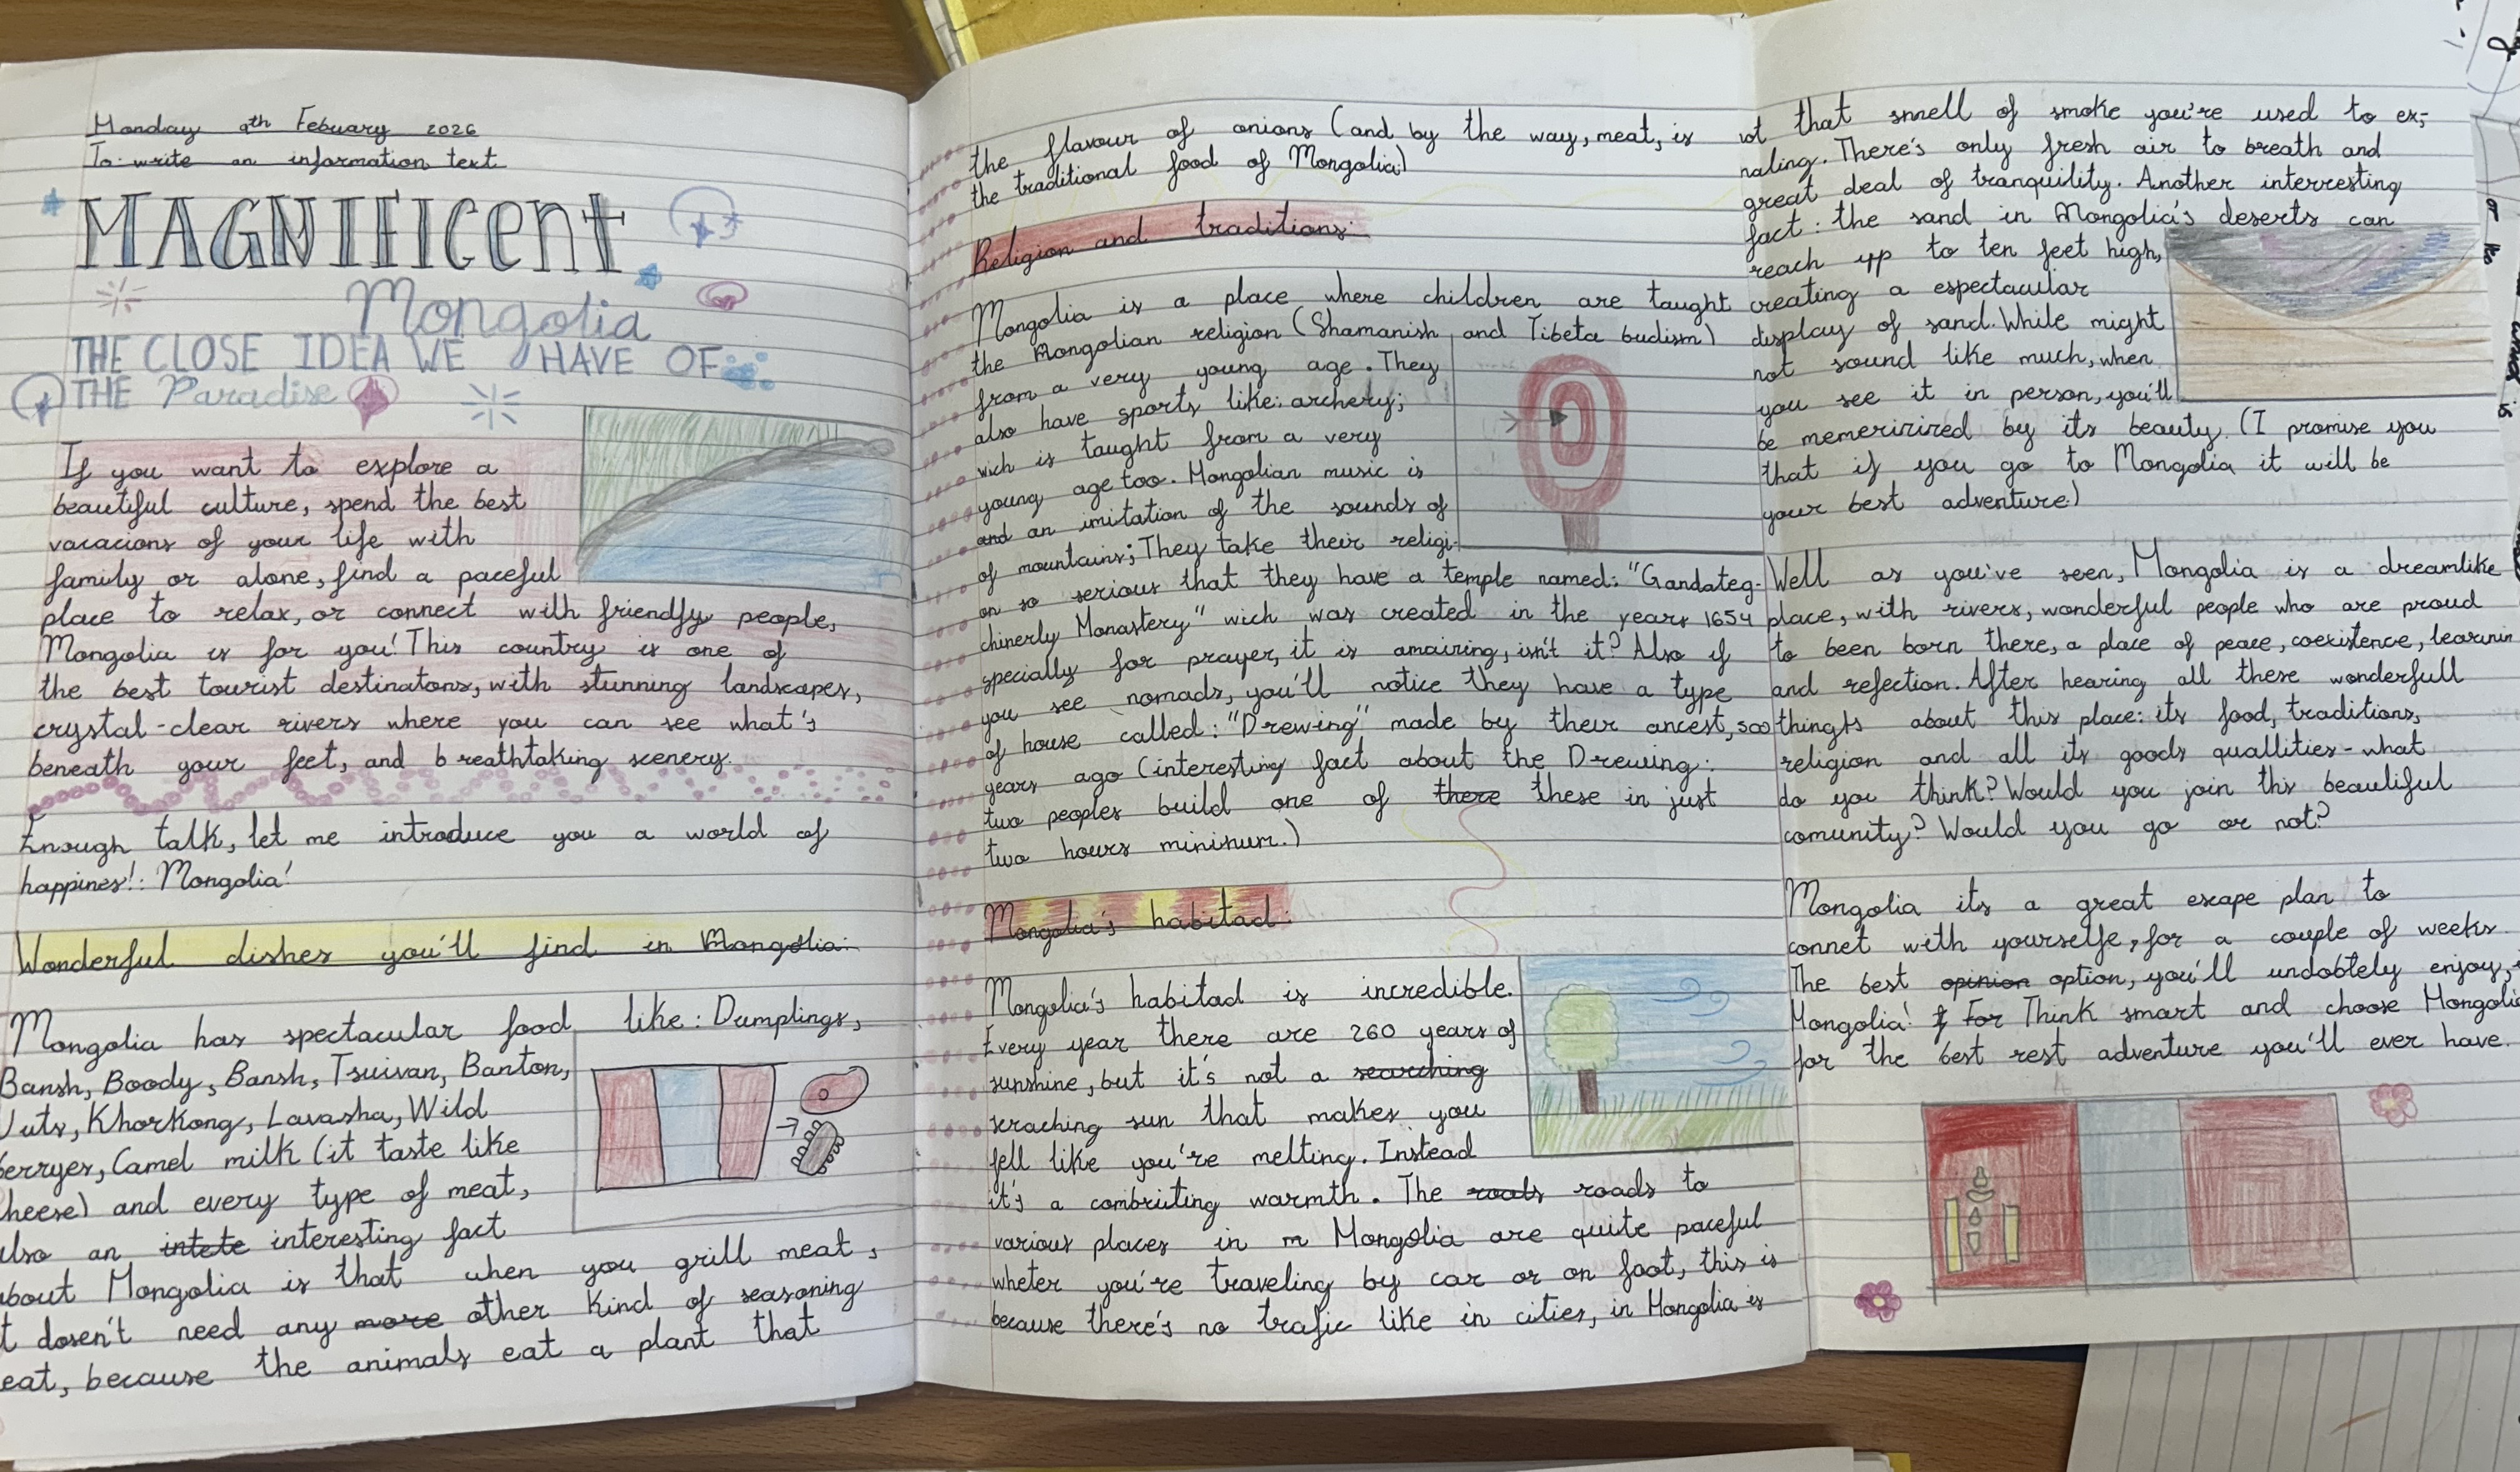 Monday 9th Febuary 2026
To write an information text
MAGNIFICENT
Mongolia
THE CLOSE IDEA WE HAVE OF
THE Paradise
If you want to explore a
beautiful culture, spend the best
vacacions of your life with
family or alone, find a paceful
place to relax, or connect with friendly people,
Mongolia is for you! This country is one of
the best tourist destinatons, with stunning landscapes,
crystal-clear rivers where you can see what's
beneath your feet, and breathtaking scenery.
Enough talk, let me introduce you a world of
happines!: Mongolia!
Wonderful dishes you'll find in Mongolia:
Mongolia has spectacular food like: Dumplings,
Bansh, Boody, Bansh, Tsuivan, Banton,
Khorkong, Lavasha, Wild
berryes, Camel milk (it taste like
cheese) and every type of meat,
also an intete interesting fact
about Mongolia is that when you grill meat,
it dosen't need any more other kind of seasoning
eat, because the animals eat a plant that
the flavour of onions (and by the way, meat, is
the traditional food of Mongolia)
Religion and traditions:
Mongolia is a place where children are taught
the Mongolian religion (Shamanish and Tibeta budism)
from a very young age. They
also have sports like: archery;
wich is taught from a very
young age too. Mongolian music is
and an imitation of the sounds of
of mountains; They take their religi-
on so serious that they have a temple named: "Gandateg-
chinerly Monastery" wich was created in the years 1654
specially for prayer, it is amairing, isn't it? Also if
you see nomads, you'll notice they have a type
of house called: "Drewing" made by their ancest, 500
years ago (interesting fact about the Drewing:
two peoples build one of there these in just
two hours mininum.)
Mongolia's habitad:
Mongolia's habitad is incredible.
Every year there are 260 years of
sunshine, but it's not a searching
scraching sun that makes you
fell like you're melting. Instead
it's a combruting warmth. The roats roads to
various places in m Mongolia are quite paceful
wheter you're traveling by car or on foot, this is
because there's no trafic like in cities, in Mongolia is
not that smell of smoke you're used to ex-
haling. There's only fresh air to breath and
great deal of tranquility. Another interresting
fact: the sand in Mongolia's deserts can
reach up to ten feet high,
creating a espectacular
display of sand. While might
not sound like much, when
you see it in person, you'll
be memerizired by its beauty. (I promise you
that if you go to Mongolia it will be
your best adventure.)
Well as you've seen, Mongolia is a dreamlike
place, with rivers, wonderful people who are proud
to been born there, a place of peace, coexistence, learnin
and refection. After hearing all these wonderfull
thinghs about this place: its food, traditions,
religion and all its goods quallities - what
do you think? Would you join this beautiful
comunity? Would you go or not?
Mongolia its a great escape plan to
connet with yourselfe, for a couple of weeks.
The best opinion option, you'll undobtely enjoy,
Mongolia! For Think smart and choose Mongolia
for the best rest adventure you'll ever have.